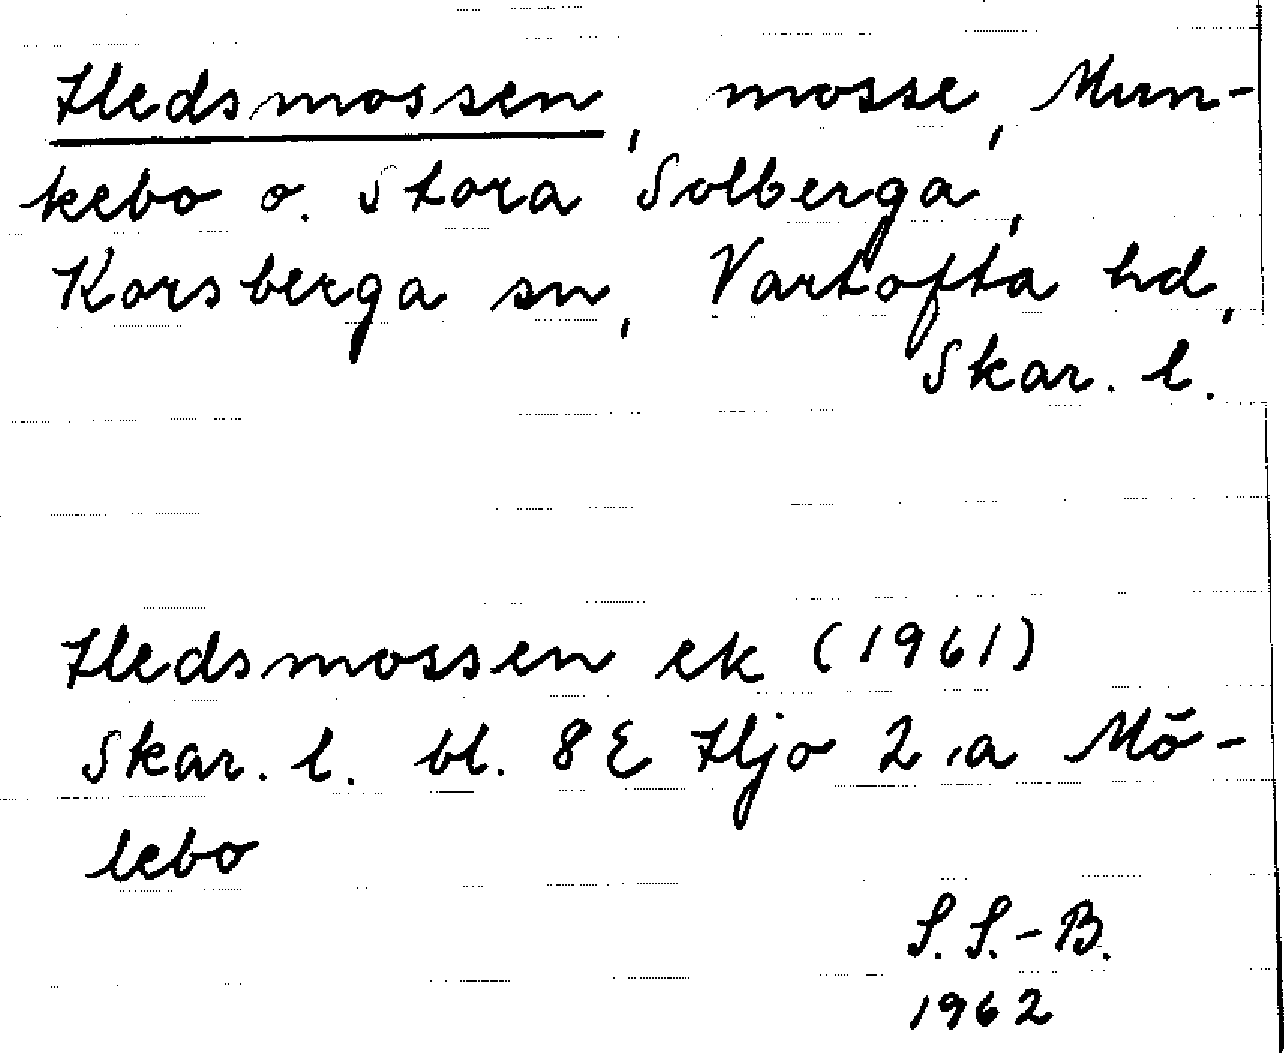 Hedsmossen, mosse, Mun-
kebo o. Stora Solberga,
Korsberga sn, Vartofta hd,
Skar. l.
Hedsmossen ek (1961)
Skar. l. bl. 8E Hjo 2 a Mö-
lebo
S. S.-B.
1962